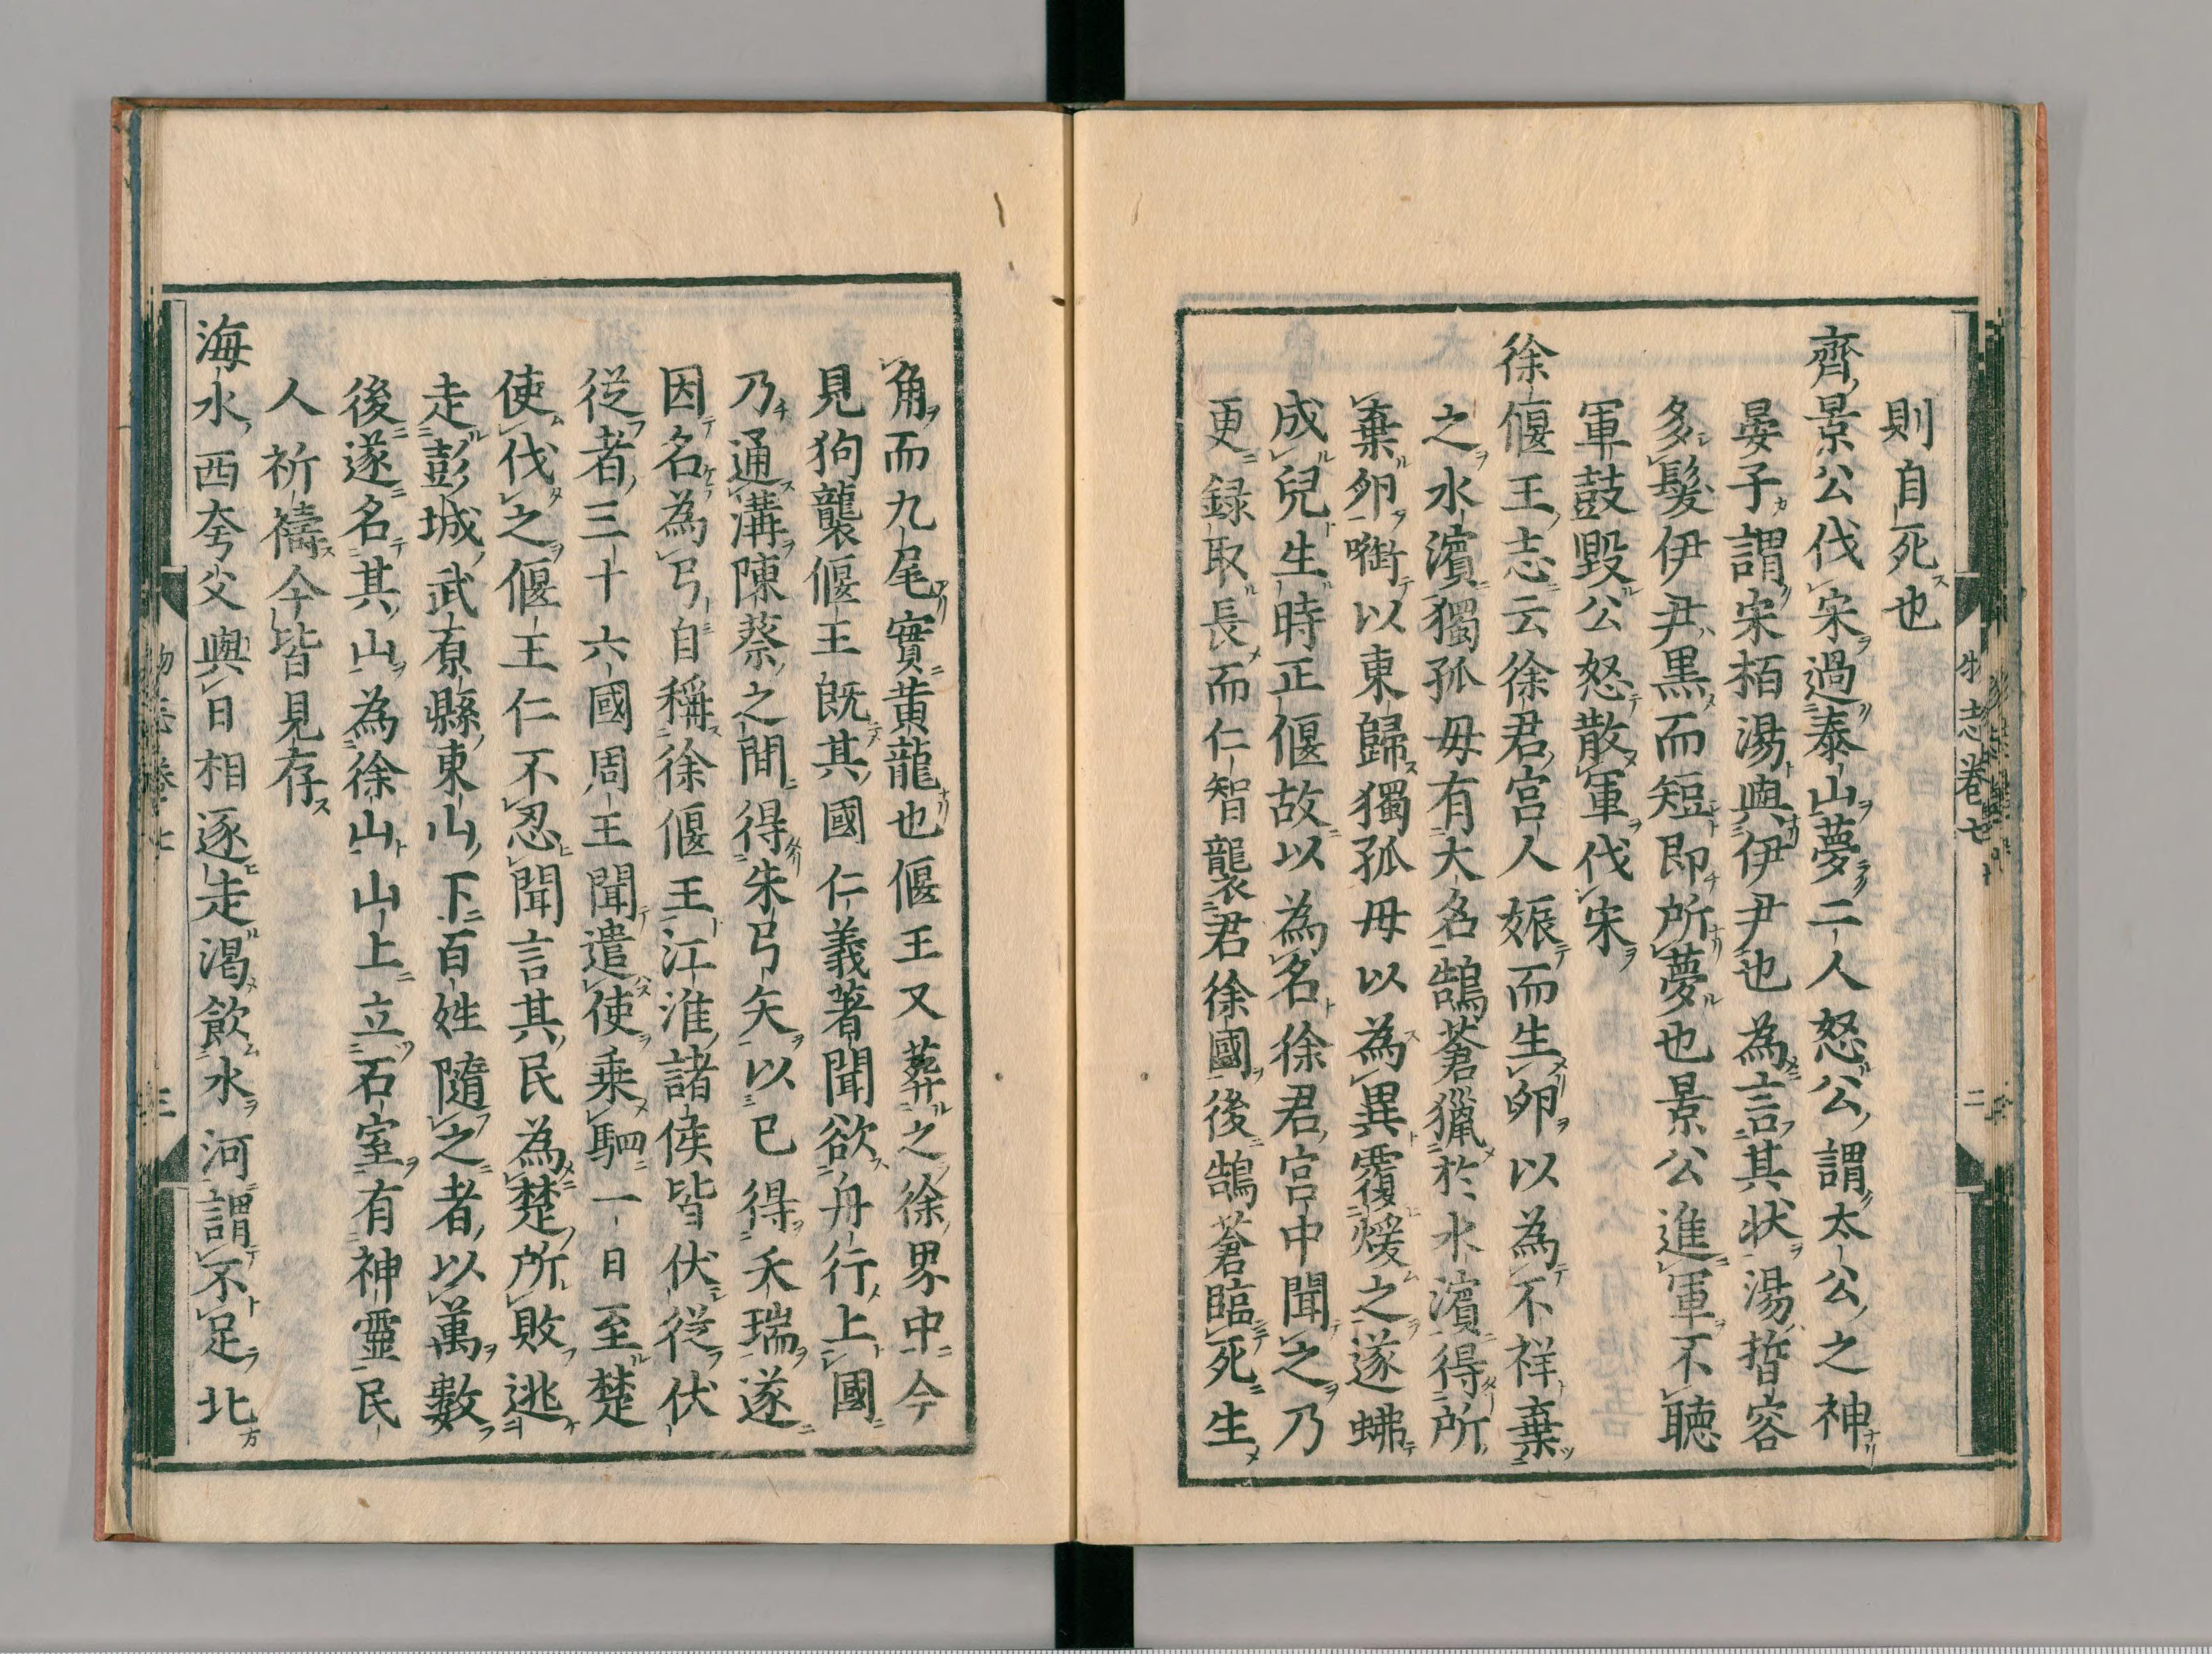 則自死也
齊景公伐宋過泰山夢二人怒公謂太公之神
晏子謂宋栢湯與伊尹也為言其状湯晳容
多髮伊尹黒而短即所夢也景公進軍不聴
軍鼓毀公怒散軍伐宋
徐偃王志云徐君宮人娠而生卵以為不祥棄
之水濱獨孤母有大名鵠蒼獵於水濱得所
棄卵㗸以東歸獨孤母以為異覆煖之遂𧊲
成兒生時正偃故以為名徐君宮中聞之乃
更録取長而仁智襲君徐國後鵠蒼臨死生
角而九尾實黄龍也偃王又葬之徐界中今
見狗襲偃王既其國仁義著聞欲舟行上國
乃通溝陳蔡之間得朱弓矢以已得天瑞遂
因名為弓自稱徐偃王江淮諸侯皆伏従伏
従者三十六國周王聞遣使乗駟一日至楚
使伐之偃王仁不忍聞言其民為楚所敗逃
走彭城武原縣東山下百姓隨之者以萬數
後遂名其山為徐山山上立石室有神靈民
人祈禱今皆見存
海水西夸父與日相逐走渇飲水河謂不足北